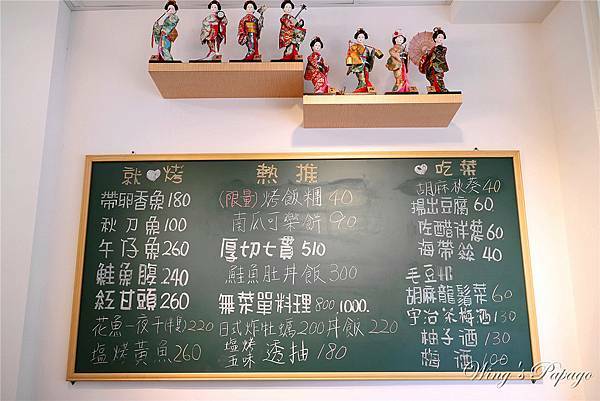 就♡烤
帶卵香魚180
秋刀魚100
午仔魚260
鮭魚腹240
紅甘頭260
花魚一夜干(半隻)220
塩烤黃魚260
熱推
(限量)烤飯糰40
南瓜可樂餅90
厚切七貫510
鮭魚肚丼飯300
無菜單料理800,1000.
日式炸牡蠣200丼飯220
塩烤
五味透抽180
♡吃菜
胡麻秋葵40
揚出豆腐60.
佐醋洋蔥60
海帶絲40
毛豆40
胡麻龍鬚菜60
宇治茶梅酒130
柚子酒130
梅酒100
Wing's Papago